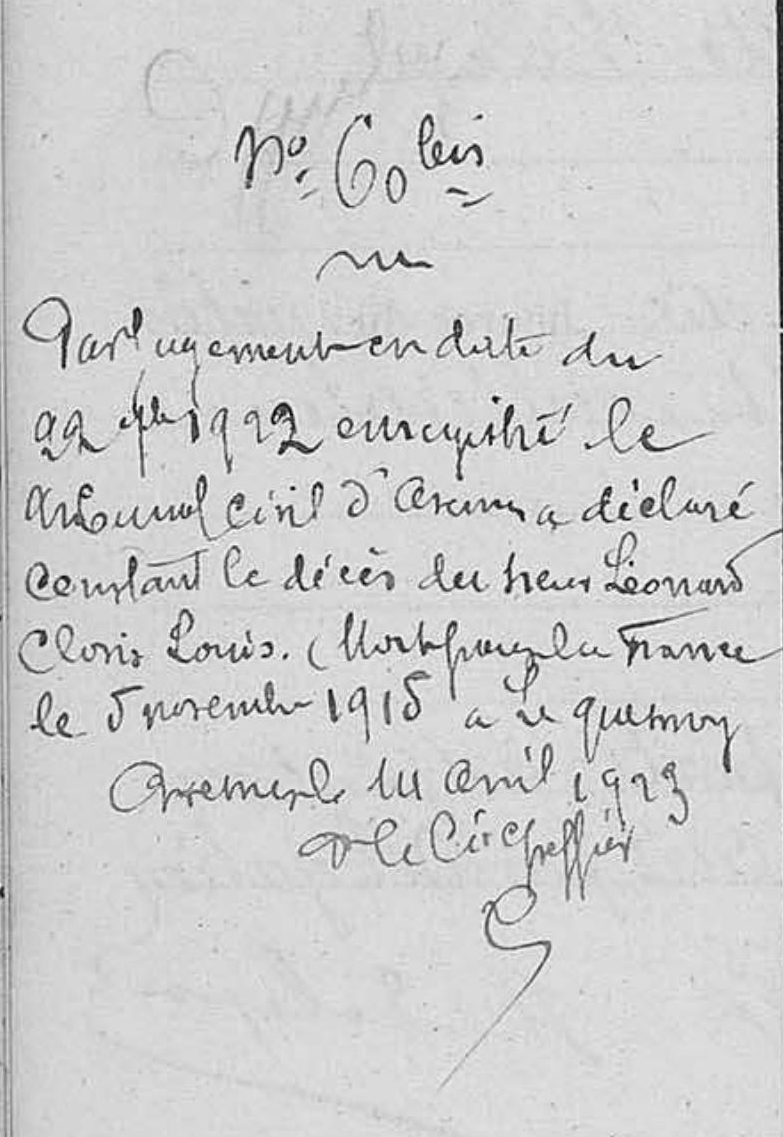 No. 60 bis
Par jugement en date du
22 1922 enregistré le
tribunal civil d'Avesnes a déclaré
constant le décès du sieur Léonard
Clovis Louis. (Mort pour la France
le 5 novembre 1918 a Le quesnoy
Avesnes le 14 avril 1923
Greffier